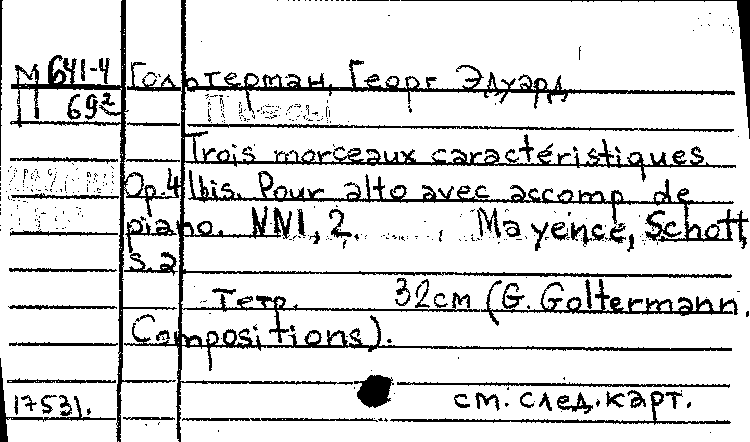 М 641-4
П 69²
Гольтерман, Георг Эдуард
Пьесы
Trois morceaux caractéristiques.
Op.41bis. Pour alto avec accomp. de
piano. NN1, 2. Mayence, Schott,
S. a.
Тетр. 32cm (G. Goltermann.
Compositions).
17531. см. след. карт.